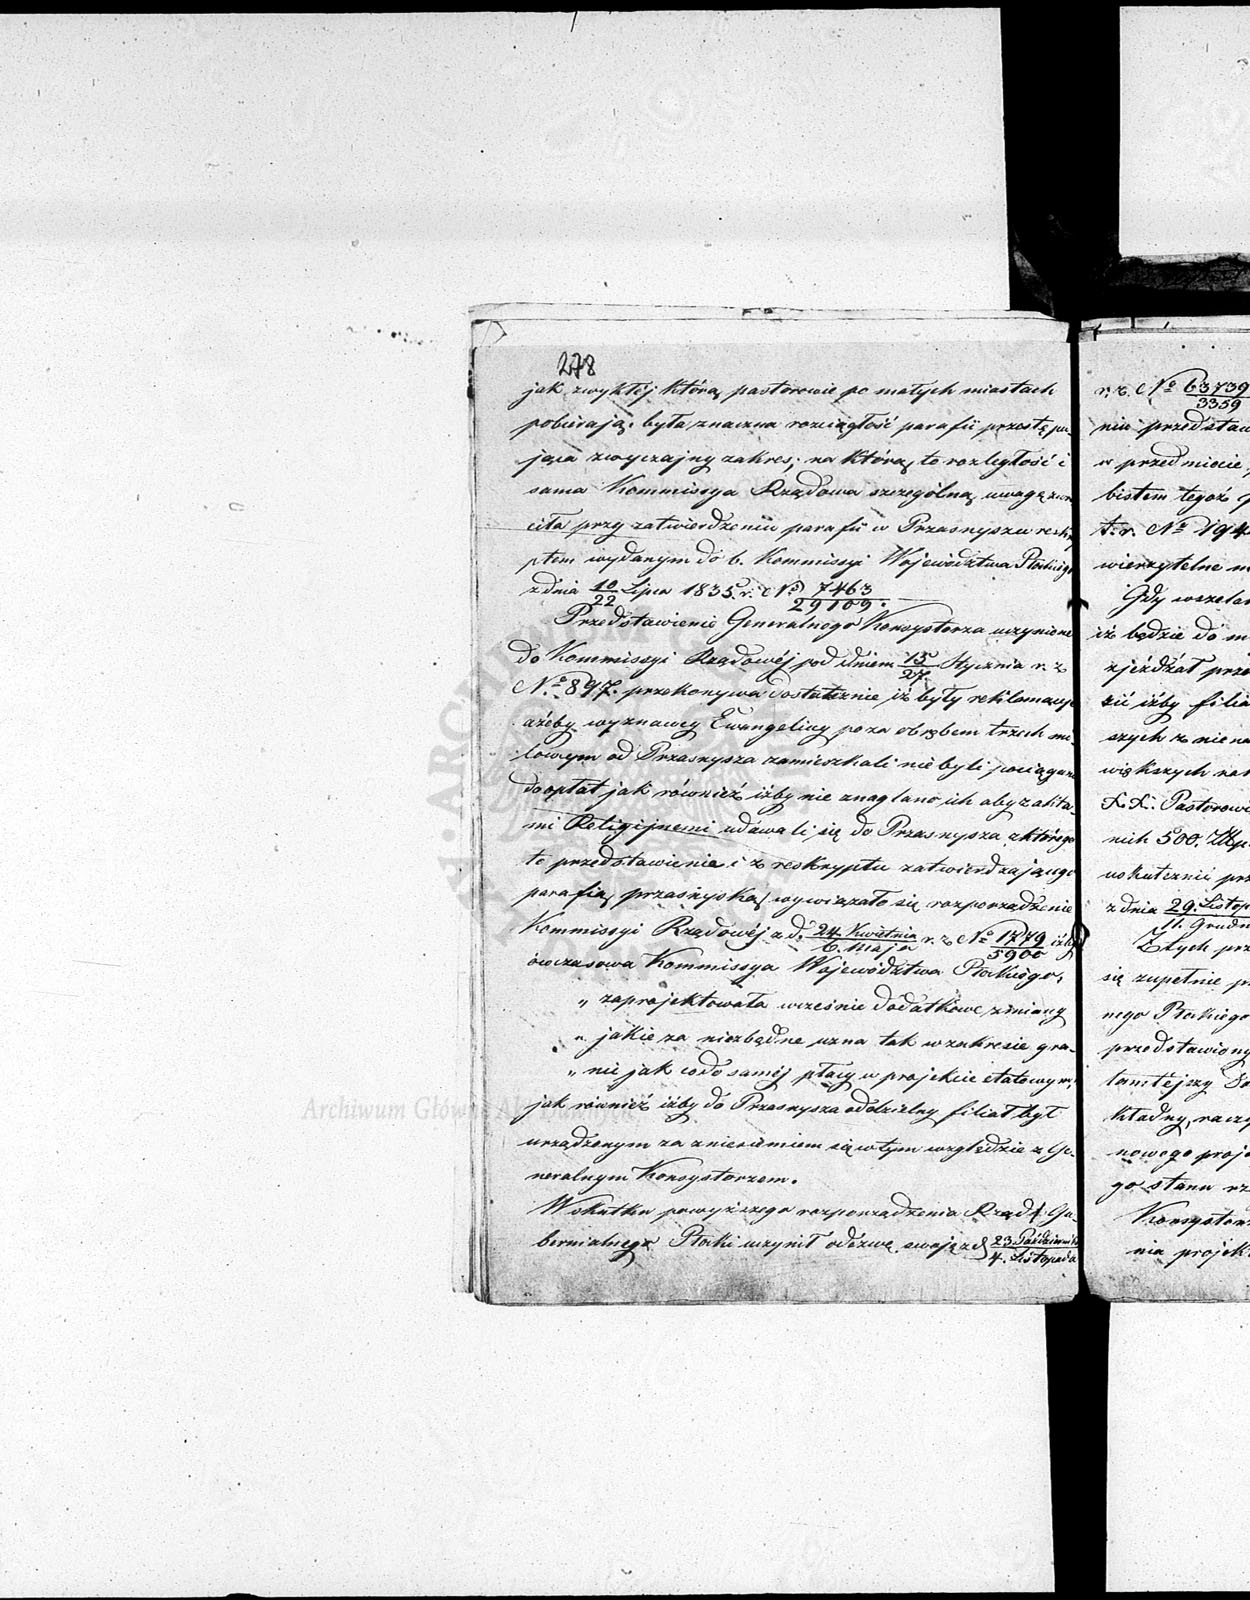 278
jak zwykłéj którą pastorowie po małych miastach
pobierają, była znaczna rozciągłość parafii przestępu-
jąca zwyczajny zakres, na którą to rozległość i
sama Kommissya Rządowa szczególną uwagę zwró
ciła przy zatwierdzeniu parafii w Przasnyszu reskry
ptem wydanym do b. Kommissyi Województwa Płockiego
z dnia 10/22 Lipca 1835. r. No 7463/29109.
Przedstawienie Generalnego Konsystorza uczynione
do Kommissyi Rządowéj pod dniem 15/27. Stycznia r. z
No. 897. przekonywa dostatecznie iż były reklamacye
ażeby wyznawcy Ewangeliccy poza obrębem trzech mi-
lowym od Przasnysza zamieszkali nie byli pociągani
do opłat jak również iżby nie znaglano ich aby z akta-
mi Religijnemi udawali się do Przasnysza z którego
to przedstawienia i z reskryptu zatwierdzającego
parafią przasnyską wywiązało się rozporządzenie
Kommissyi Rządowéj z d. 24. Kwietnia/6. Maja r. z No 1779/5900 iżby
ówczasowa Kommissya Województwa Płockiego,
„ zaprojektowała wcześnie dodatkowe zmiany
„ jakie za niezbędne uzna tak w zakresie gra-
„ nic jak co do saméj płacy w projekcie etatowym,
jak również iżby do Przasnysza oddzielny filiał był
urządzonym za zniesieniem się w tym względzie z Ge-
neralnym Konsystorzem.
W skutku powyższego rozporządzenia Rząd Gu-
bernialny Płocki uczynił odezwę swoję z d. 23. Października/4. Listopada
r. z. No 63739/3359
niu przedstaw
w przedmiocie,
bistem tegoż
t. r. No 194
wierzytelne
Gdy wszela
iż będzie do
zjeżdżał prze
zić iżby filia
szych z nie
większych
X.X. Pastorowi
nich 500. Złp
uskutecznić prz
z dnia 29. Listop/11. Grudn
Z tych prz
się zupełnie
nego Płockiego
przedstawiony
tamtejszy
kładny, raczy
nowego proj
go stanu rz
Konsystorz
nia projek
Archiwum Główne Akt Dawnych